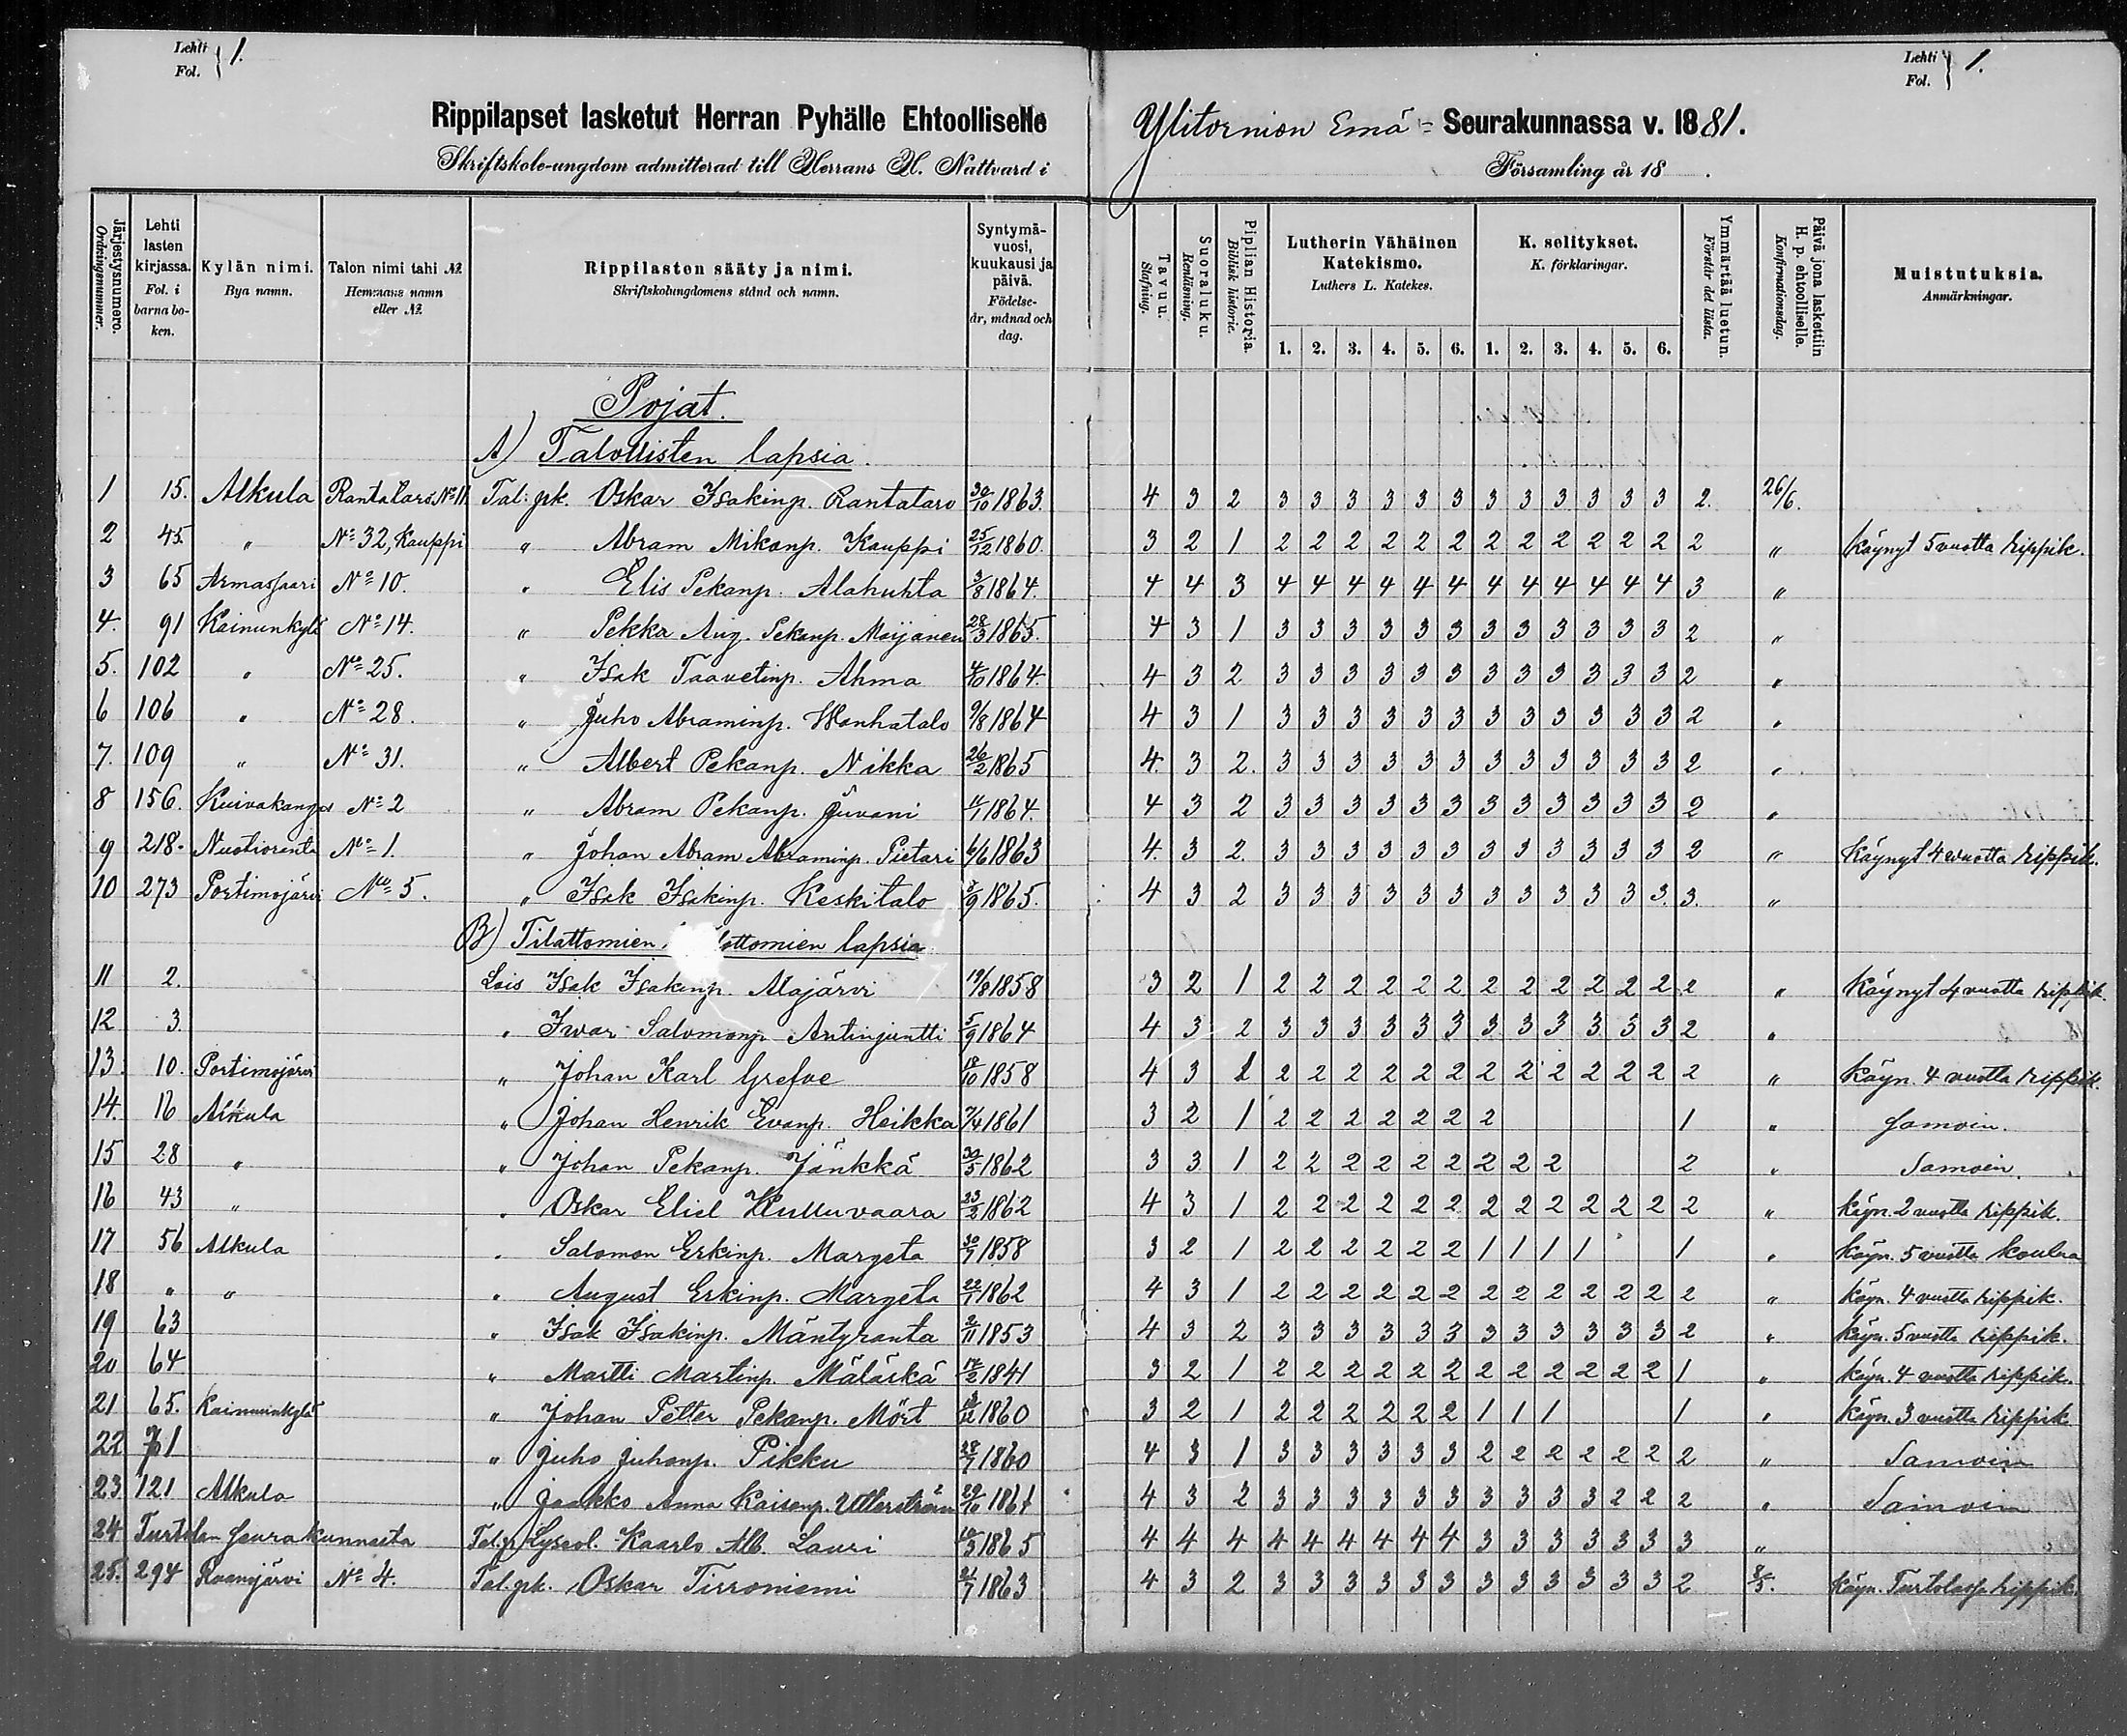 Lehti Fol. } 1.
Lehti Fol. } 1.
Rippilapset lasketut Herran Pyhälle Ehtoolliselle Ylitornion Emä = Seurakunnassa v. 1881.
Skriftskole-ungdom admitterad till Herrans H. Nattvard i Församling år 18 .
Järjestysnumero. Ordningsnummer.
Lehti lasten kirjassa. Fol. i barnaboken.
Kylän nimi. Bya namn.
Talon nimi tahi № Hemmans namn eller №
Rippilasten sääty ja nimi. Skriftskolungdomens stånd och namn.
Syntymä-vuosi, kuukausi ja päivä. Födelse-år, månad och dag.
Tavuu. Stafning.
Suoraluku. Renläsning.
Piplian Historia. Biblisk historie.
Lutherin Vähäinen Katekismo. Luthers L. Katekes. 1. 2. 3. 4. 5. 6.
K. selitykset. K. förklaringar. 1. 2. 3. 4. 5. 6.
Ymmärtää luetun. Förstår det lästa.
Päivä jona laskettiin H. p. ehtoolliselle. Konfirmationsdag.
Muistutuksia. Anmärkningar.
Pojat.
A) Talollisten lapsia.
1 15. Alkula Rantataro No 11 Tal: pk. Oskar Isakinp. Rantataro 30/10 1863. 4 3 2 3 3 3 3 3 3 3 3 3 3 3 3 2. 26/6.
2 45. " No 32, Kauppi " Abram Mikonp. Kauppi 25/12 1860. 3 2 1 2 2 2 2 2 2 2 2 2 2 2 2 2 " Käynyt 5 vuotta rippik.
3 65 Armassaari No 10. " Elis Pekanp. Alahuhta 3/8 1864. 4 4 3 4 4 4 4 4 4 4 4 4 4 4 4 3 "
4. 91 Kainunkylä No 14. " Pekka Aug. Pekanp. Moijanen 28/3 1865. 4 3 1 3 3 3 3 3 3 3 3 3 3 3 3 2 "
5. 102 " No 25. " Isak Taavetinp. Ahma 4/10 1864. 4 3 2 3 3 3 3 3 3 3 3 3 3 3 3 2 "
6 106 " No 28. " Juho Abraminp. Wanhatalo 9/8 1864 4 3 1 3 3 3 3 3 3 3 3 3 3 3 3 2 "
7. 109 " No 31. " Albert Pekanp. Nikka 26/2 1865 4. 3 2. 3 3 3 3 3 3 3 3 3 3 3 3 2 "
8 156. Kuivakangas No 2 " Abram Pekanp. Juvani 11/1 1864. 4 3 2 3 3 3 3 3 3 3 3 3 3 3 3 2 "
9 218. Nuotioranta No 1. " Johan Abram Abraminp. Pietari 6/6 1863 4. 3 2. 3 3 3 3 3 3 3 3 3 3 3 3 2 " Käynyt 4 vuotta rippik.
10 273 Portimojärvi No 5. " Isak Isakinp. Keskitalo 3/9 1865. 4 3 2 3 3 3 3 3 3 3 3 3 3 3 3. 3. "
B) Tilattomien lottomien lapsia
11 2. Lois Isak Isakinp. Alajärvi 19/8 1858 3 2 1 2 2 2 2 2 2 2 2 2 2 2 2 2 " Käynyt 4 vuotta rippik.
12 3 " Iwar Salomonp. Antinjuntti 5/9 1864 4 3 2 3 3 3 3 3 3 3 3 3 3 3 3 2 "
13. 10. Portimojärvi " Johan Karl Grefve 18/10 1858 4 3 1 2 2 2 2 2 2 2 2 2 2 2 2 2 " Käyn. 4 vuotta rippik.
14. 16 Alkula " Johan Henrik Evanp. Heikka 7/4 1861 3 2 1 2 2 2 2 2 2 2 1 " Samoin.
15 28 " " Johan Pekanp. Jänkkä 30/5 1862 3 3 1 2 2 2 2 2 2 2 2 2 2 " Samoin.
16 43 " " Oskar Eliel Kulluvaara 23/2 1862 4 3 1 2 2 2 2 2 2 2 2 2 2 2 2 2 " Käyn. 2 vuotta rippik.
17 56 Alkula " Salomon Erkinp. Margeta 30/7 1858 3 2 1 2 2 2 2 2 2 1 1 1 1 1 " Käyn. 5 vuotta koulua
18 " " " August Erkinp. Margeta 22/7 1862 4 3 1 2 2 2 2 2 2 2 2 2 2 2 2 2 " Käyn. 4 vuotta rippik.
19 63 " Isak Isakinp. Mäntyranta 2/11 1853 4 3 2 3 3 3 3 3 3 3 3 3 3 3 3 2 " Käyn. 5 vuotta rippik.
20 64 " Martti Martinp. Mäläskä 17/2 1841 3 2 1 2 2 2 2 2 2 2 2 2 2 2 2 1 " Käyn. 4 vuotta rippik.
21 65. Kainuunkylä " Johan Petter Pekanp. Mört 1860 3 2 1 2 2 2 2 2 2 1 1 1 1 " Käyn. 3 vuotta rippik
22 71 " Juho Juhonp. Pikku 28/7 1860 4 3 1 3 3 3 3 3 3 2 2 2 2 2 2 2 " Samoin
23 121 Alkula " Jaakko Anna Kaisanp. Utterström 29/10 1864 4 3 2 3 3 3 3 3 3 3 3 3 3 2 2 2 " Samoin
24 Turtolan seurakunnasta Tal.p. Lyseol. Kaarlo Alb. Lauri 1865 4 4 4 4 4 4 4 4 4 3 3 3 3 3 3 3 "
25. 294 Raanojärvi No 4. Tal.pk. Oskar Tirroniemi 21/7 1863 4 3 2 3 3 3 3 3 3 3 3 3 3 3 3 2 8/5. Käyn. Turtolassa rippik.